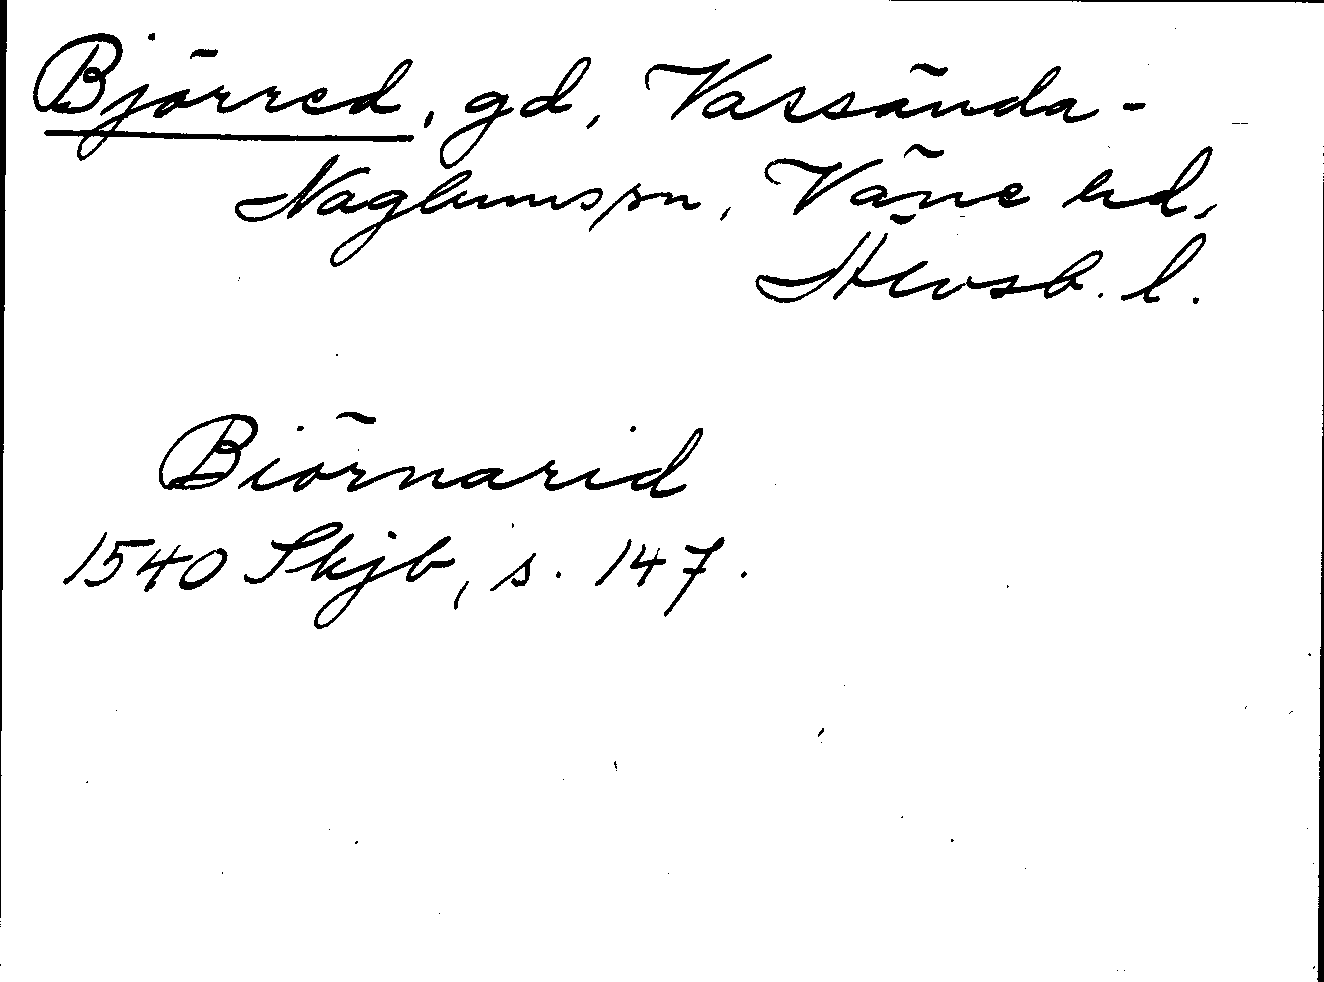 Björred, gd, Vassända-
Naglumssn, Väne hd,
Älvsb. l.
Biörnarid
1540 Skjb, s. 147.